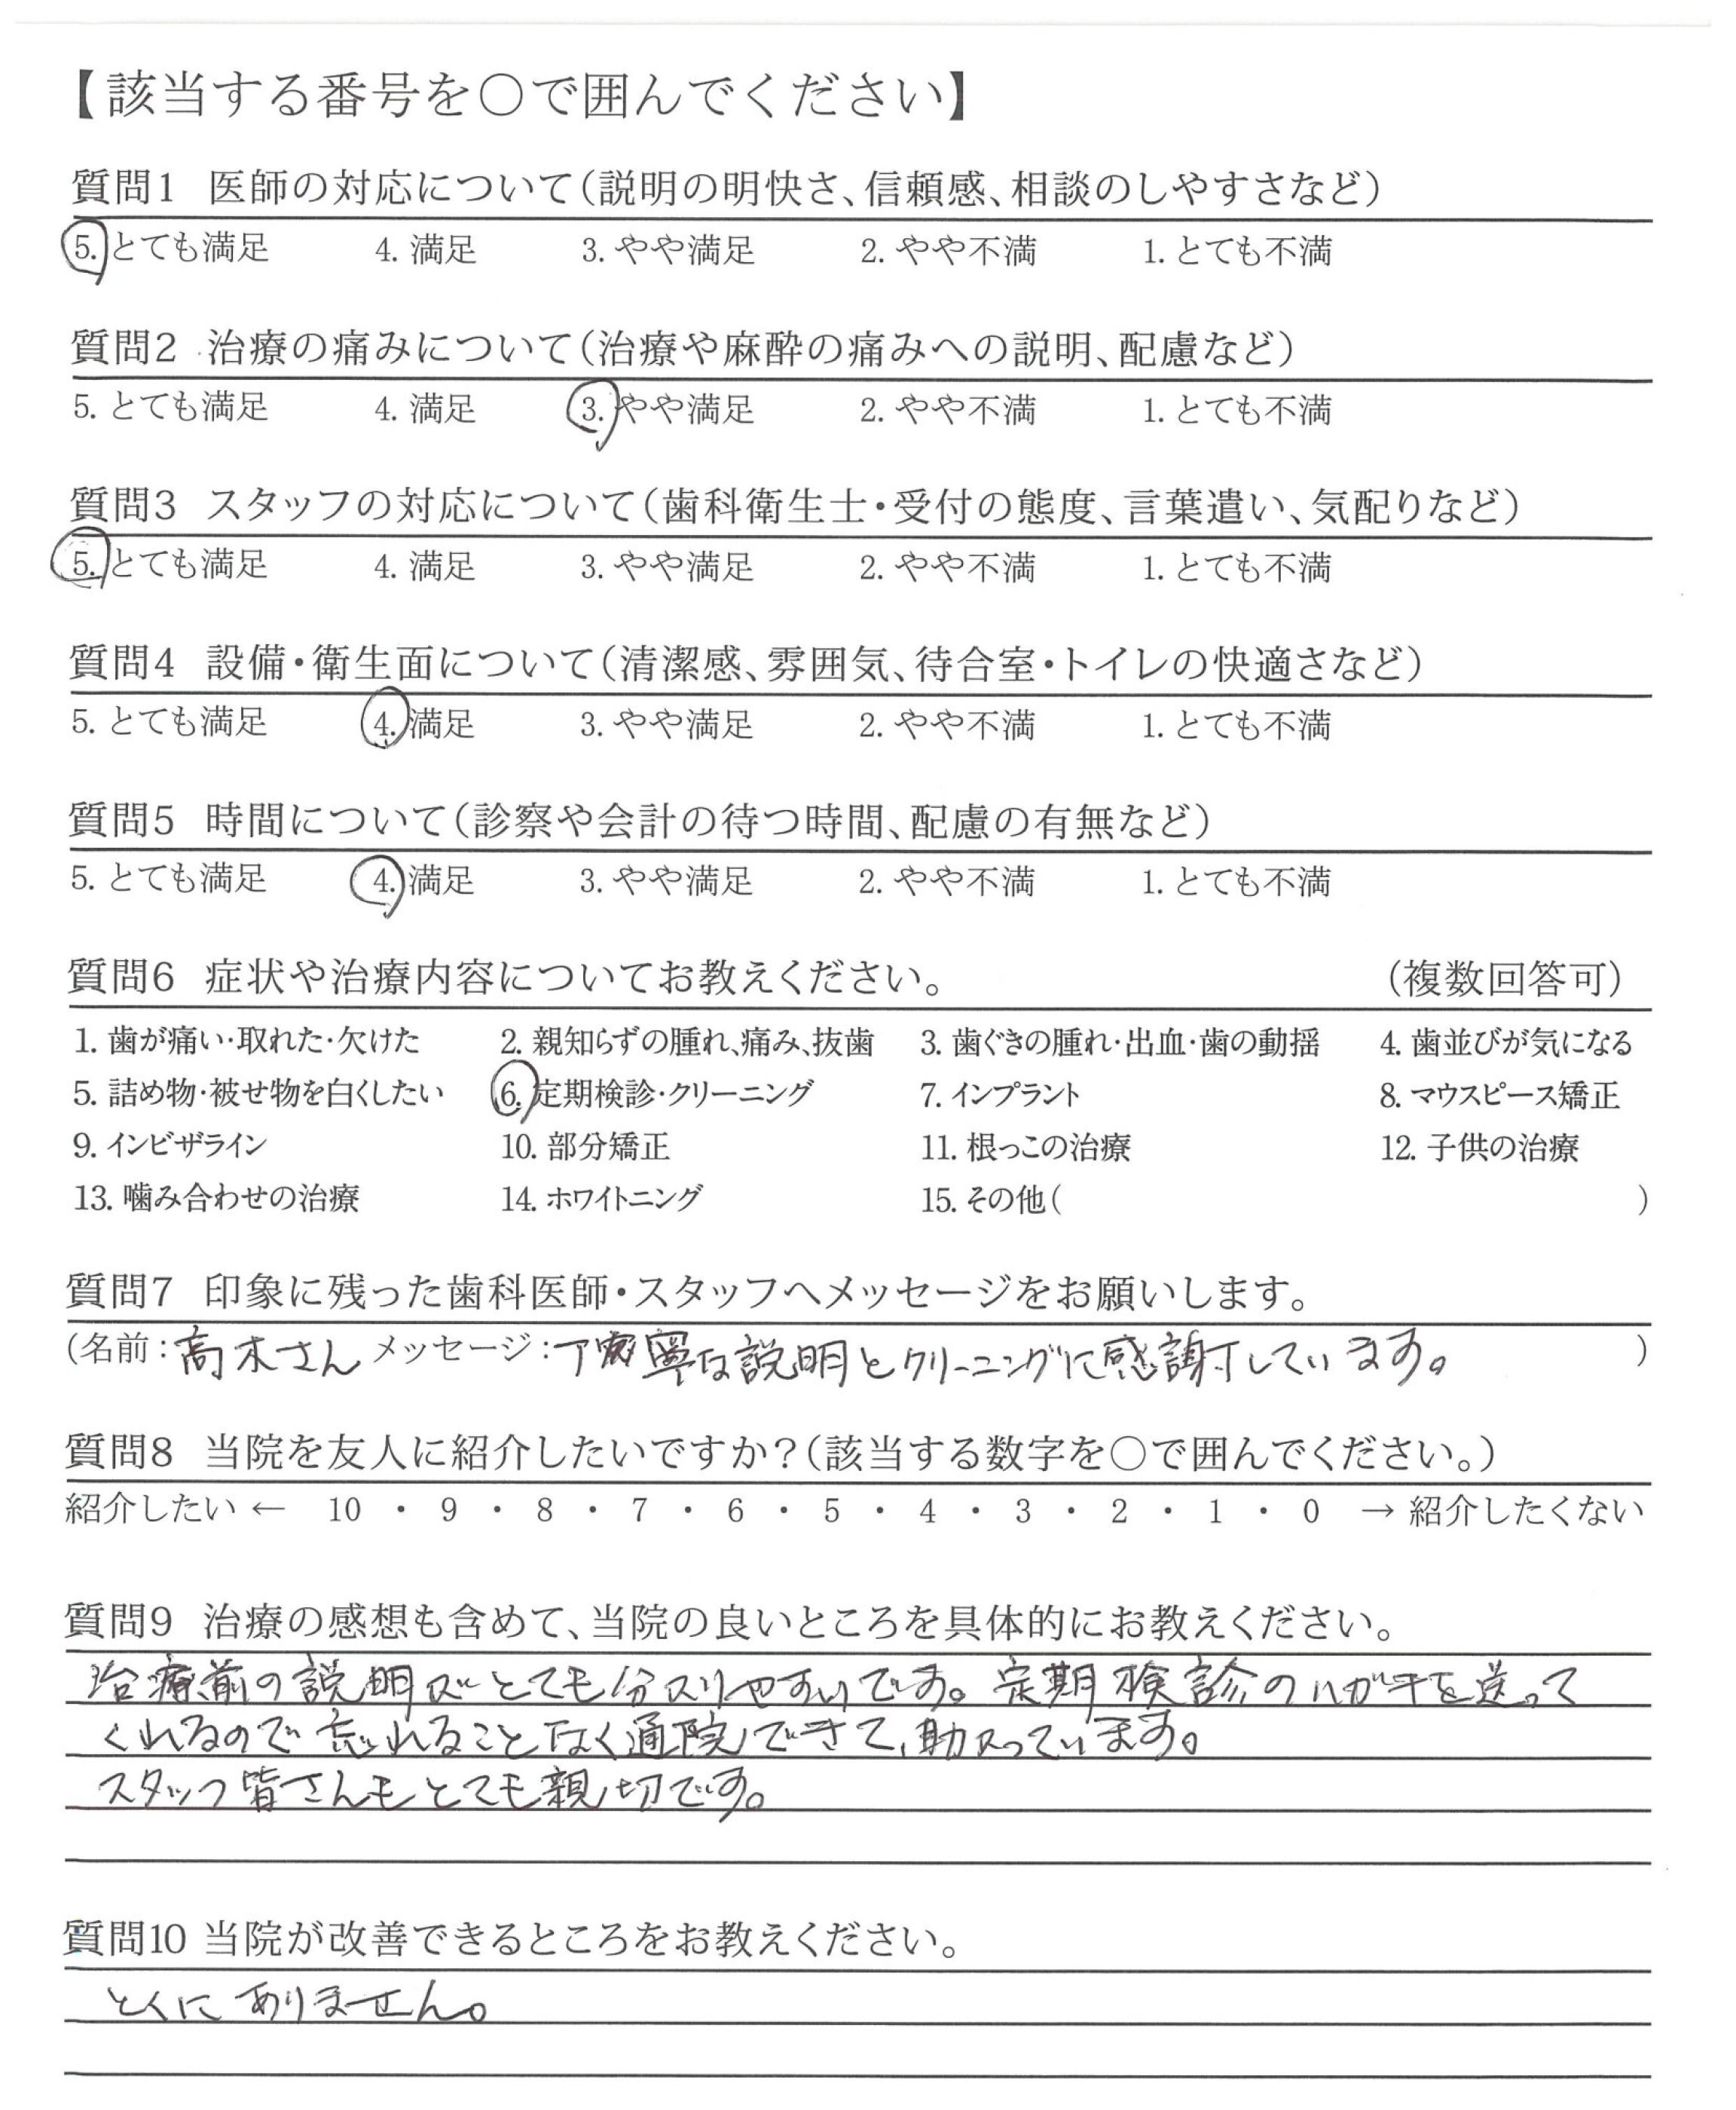 【該当する番号を○で囲んでください】
質問1 医師の対応について(説明の明快さ、信頼感、相談のしやすさなど)
5. とても満足 4. 満足 3. やや満足 2. やや不満 1. とても不満
質問2 治療の痛みについて(治療や麻酔の痛みへの説明、配慮など)
5. とても満足 4. 満足 3. やや満足 2. やや不満 1. とても不満
質問3 スタッフの対応について(歯科衛生士・受付の態度、言葉遣い、気配りなど)
5. とても満足 4. 満足 3. やや満足 2. やや不満 1. とても不満
質問4 設備・衛生面について(清潔感、雰囲気、待合室・トイレの快適さなど)
5. とても満足 4. 満足 3. やや満足 2. やや不満 1. とても不満
質問5 時間について(診察や会計の待つ時間、配慮の有無など)
5. とても満足 4. 満足 3. やや満足 2. やや不満 1. とても不満
質問6 症状や治療内容についてお教えください。 (複数回答可)
1. 歯が痛い・取れた・欠けた 2. 親知らずの腫れ、痛み、抜歯 3. 歯ぐきの腫れ・出血・歯の動揺 4. 歯並びが気になる
5. 詰め物・被せ物を白くしたい 6. 定期検診・クリーニング 7. インプラント 8. マウスピース矯正
9. インビザライン 10. 部分矯正 11. 根っこの治療 12. 子供の治療
13. 噛み合わせの治療 14. ホワイトニング 15. その他( )
質問7 印象に残った歯科医師・スタッフへメッセージをお願いします。
(名前：高木さん メッセージ：丁寧な説明とクリーニングに感謝しています。 )
質問8 当院を友人に紹介したいですか？(該当する数字を○で囲んでください。)
紹介したい ← 10 ・ 9 ・ 8 ・ 7 ・ 6 ・ 5 ・ 4 ・ 3 ・ 2 ・ 1 ・ 0 → 紹介したくない
質問9 治療の感想も含めて、当院の良いところを具体的にお教えください。
治療前の説明がとても分かりやすいです。定期検診のハガキを送って
くれるので忘れることなく通院できて、助かっています。
スタッフ皆さんもとても親切です。
質問10 当院が改善できるところをお教えください。
とくにありません。